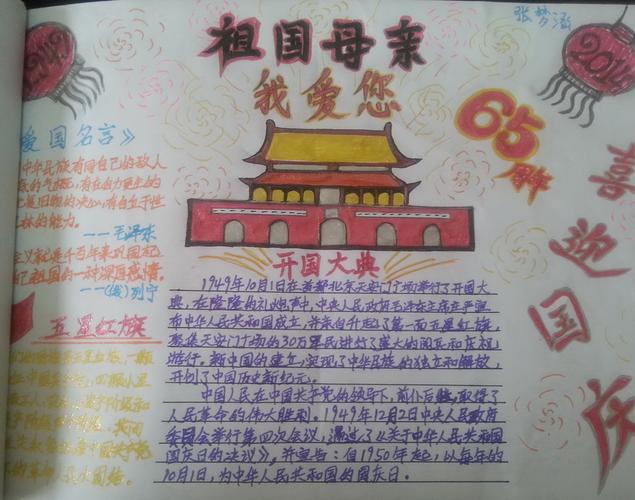 张梦涵
1949
2014
祖国母亲
我爱您
65
周年
喜迎国庆
爱国名言》
中华民族有同自己的敌人
的气概,有在自力更生的
旧物的决心,有自立于世
林的能力。
---毛泽东
主义就是千百年来巩固起
己祖国的一种深厚感情。
--(俄)列宁
五星红旗
开国大典
1949年10月1日在首都北京天安门广场举行了开国大
典,在隆隆的礼炮声中,中央人民政府毛泽东主席在严宣
布中华人民共和国成立,并亲自升起了第一面五星红旗,
聚集天安门广场的30万军民进行了盛大的阅兵和庆祝
游行。新中国的建立,实现了中华民族的独立和解放,
开创了中国历史新纪元。
中国人民在中国共产党的领导下,前仆后继,取得了
人民革命的伟大胜利。1949年12月2日中央人民政府
委员会举行第四次会议,通过了《关于中华人民共和国
国庆日的决议》,并宣告:自1950年起,以每年的
10月1日,为中华人民共和国的国庆日。